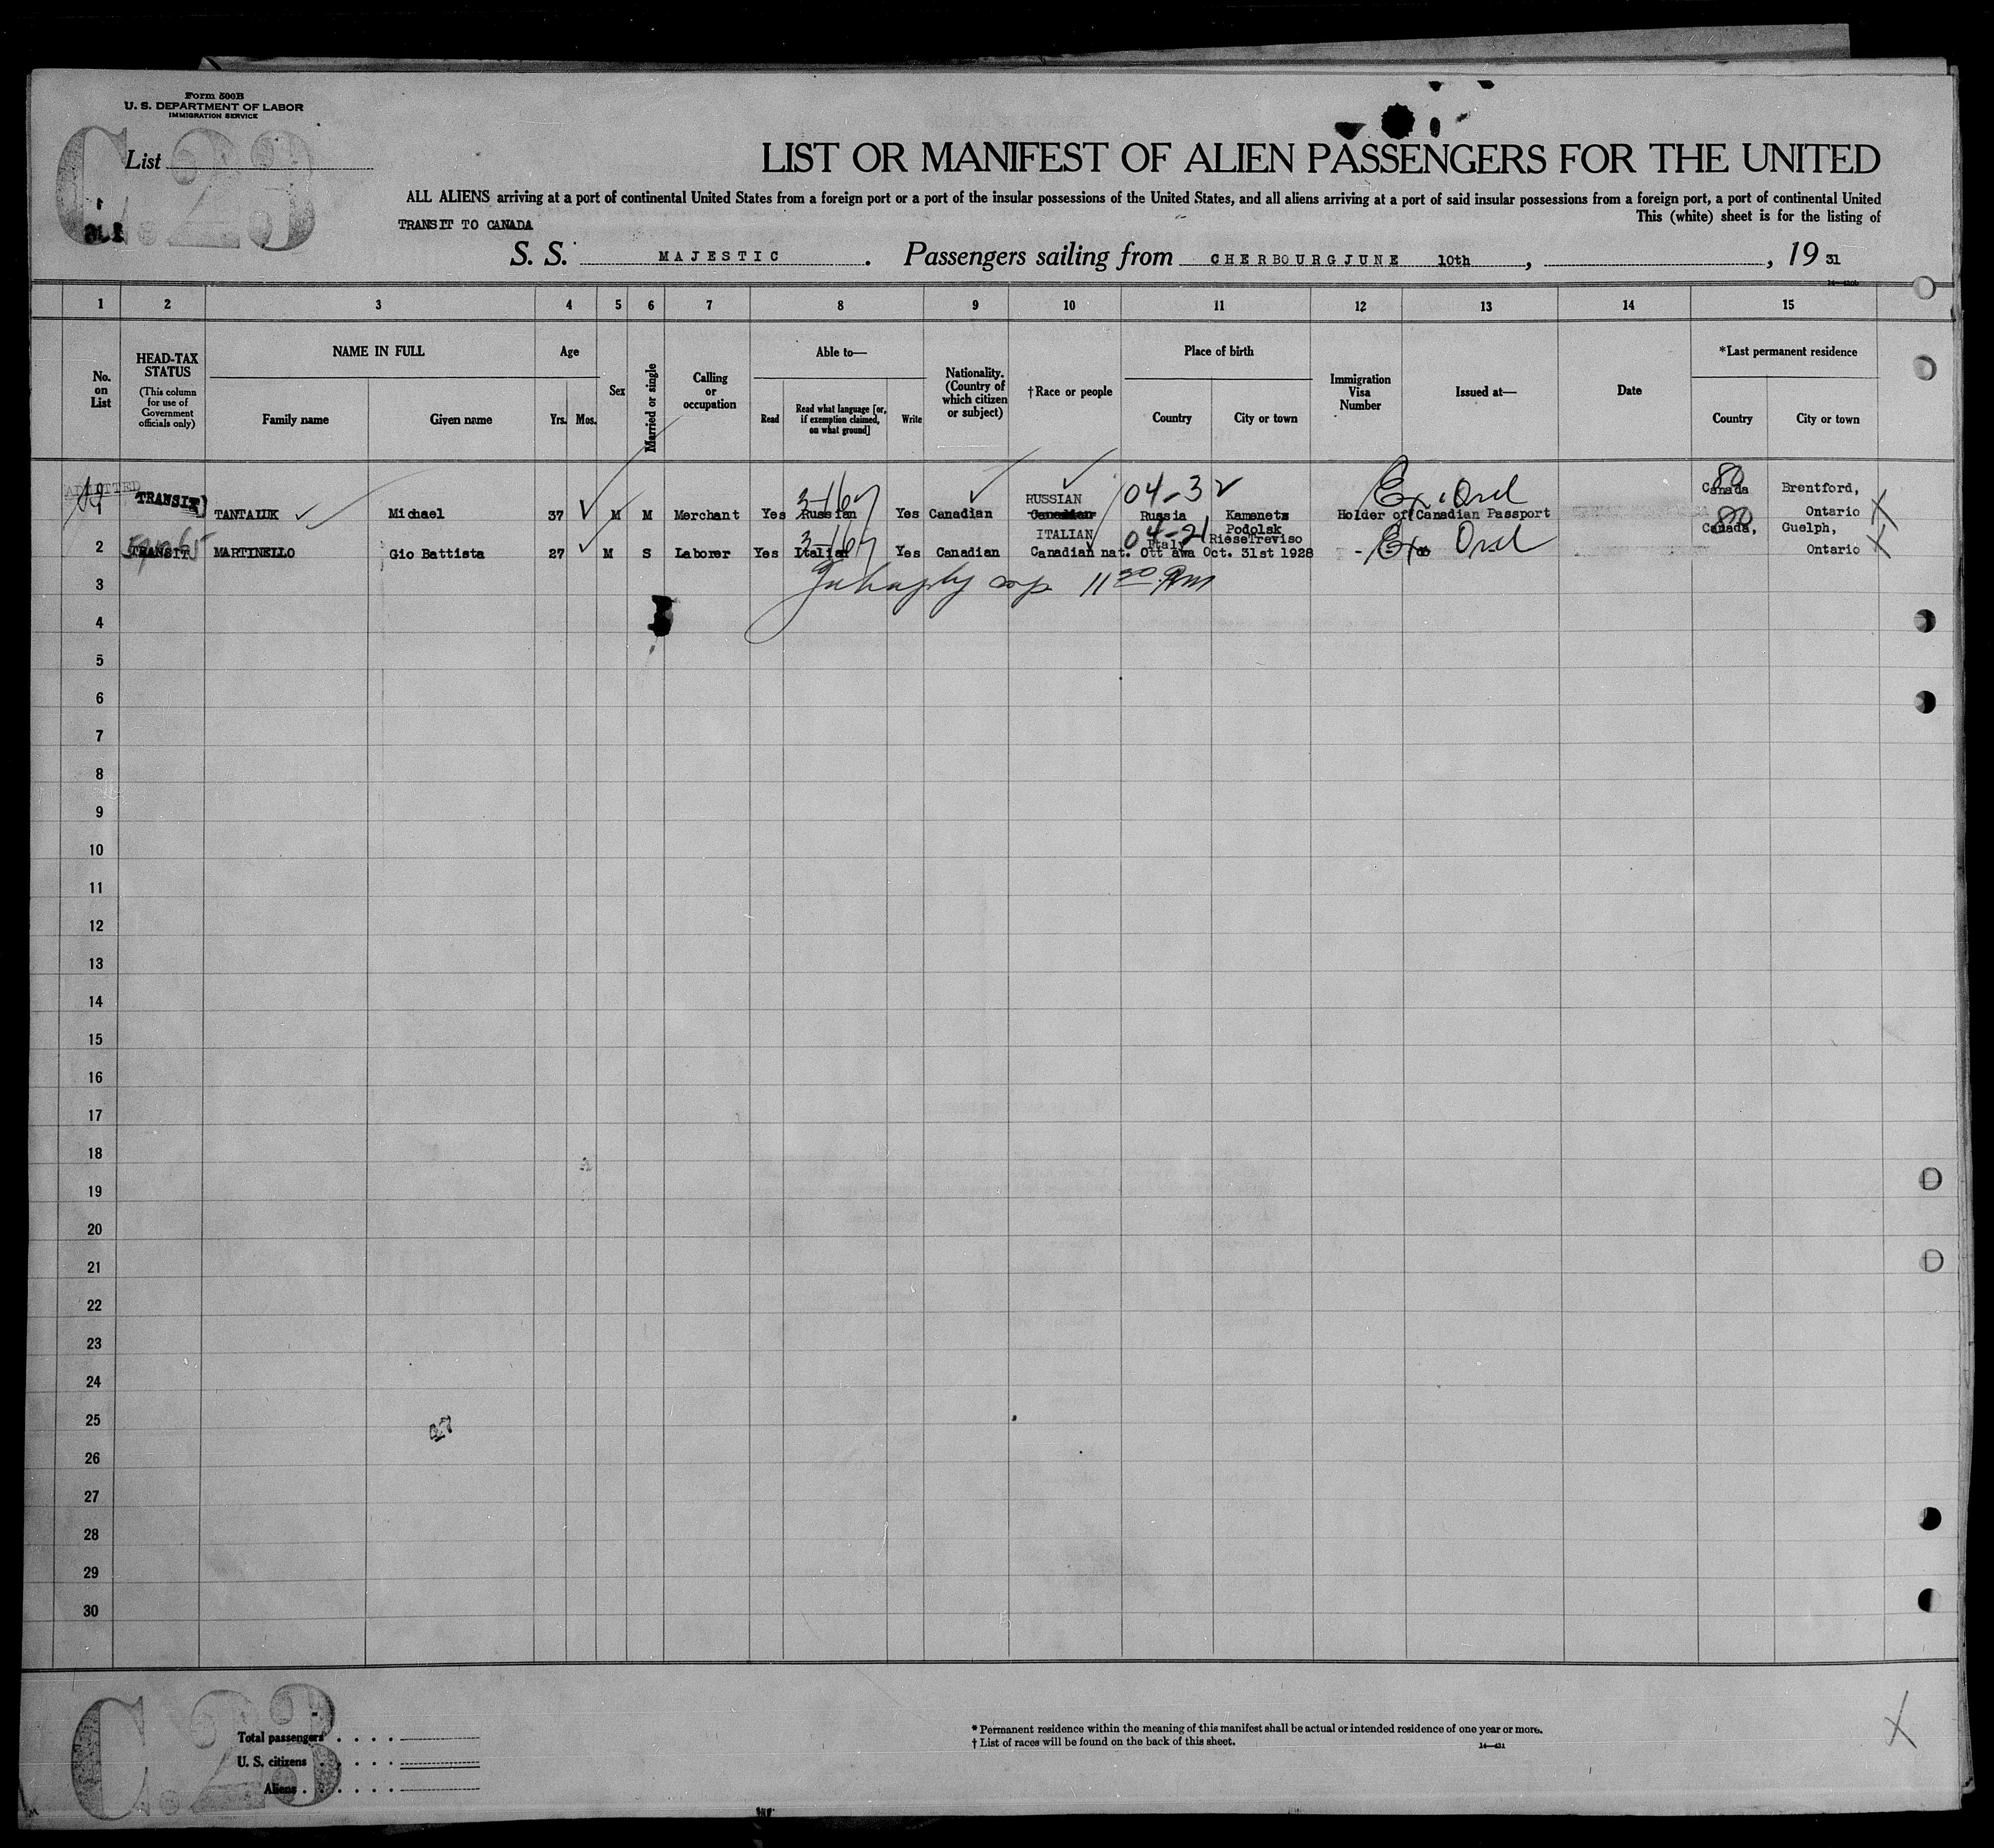 Form 500B
U. S. DEPARTMENT OF LABOR
IMMIGRATION SERVICE
C.23
List
LIST OR MANIFEST OF ALIEN PASSENGERS FOR THE UNITED
ALL ALIENS arriving at a port of continental United States from a foreign port or a port of the insular possessions of the United States, and all aliens arriving at a port of said insular possessions from a foreign port, a port of continental United
TRANSIT TO CANADA
This (white) sheet is for the listing of
S. S. MAJESTIC. Passengers sailing from CHERBOURG JUNE 10th, , 19 31
1 2 3 4 5 6 7 8 9 10 11 12 13 14 15
No. on List
HEAD-TAX STATUS
(This column for use of Government officials only)
NAME IN FULL
Family name
Given name
Age
Yrs.
Mos.
Sex
Married or single
Calling or occupation
Able to—
Read
Read what language [or, if exemption claimed, on what ground]
Write
Nationality. (Country of which citizen or subject)
†Race or people
Place of birth
Country
City or town
Immigration Visa Number
Issued at—
Date
*Last permanent residence
Country
City or town
ADMITTED
TRANSIT TANTALUK Michael 37 M M Merchant Yes Russian Yes Canadian RUSSIAN Canadian Russia Kamenetz Podolsk Holder of Canadian Passport Canada Brentford, Ontario
3-167 04-3 Ex. Ord 80
2 TRANSIT MARTINELLO Gio Battista 27 M S Laborer Yes Italian Yes Canadian ITALIAN Italy Riese Treviso Canada, Guelph, Ontario
Canadian nat. Ottawa Oct. 31st 1928
3-167 04-21 Ex Ord 80
11 30 PM
3
4
5
6
7
8
9
10
11
12
13
14
15
16
17
18
19
20
21
22
23
24
25
26
27
28
29
30
C.23
Total passengers
U. S. citizens
Aliens
* Permanent residence within the meaning of this manifest shall be actual or intended residence of one year or more.
† List of races will be found on the back of this sheet.
14—431